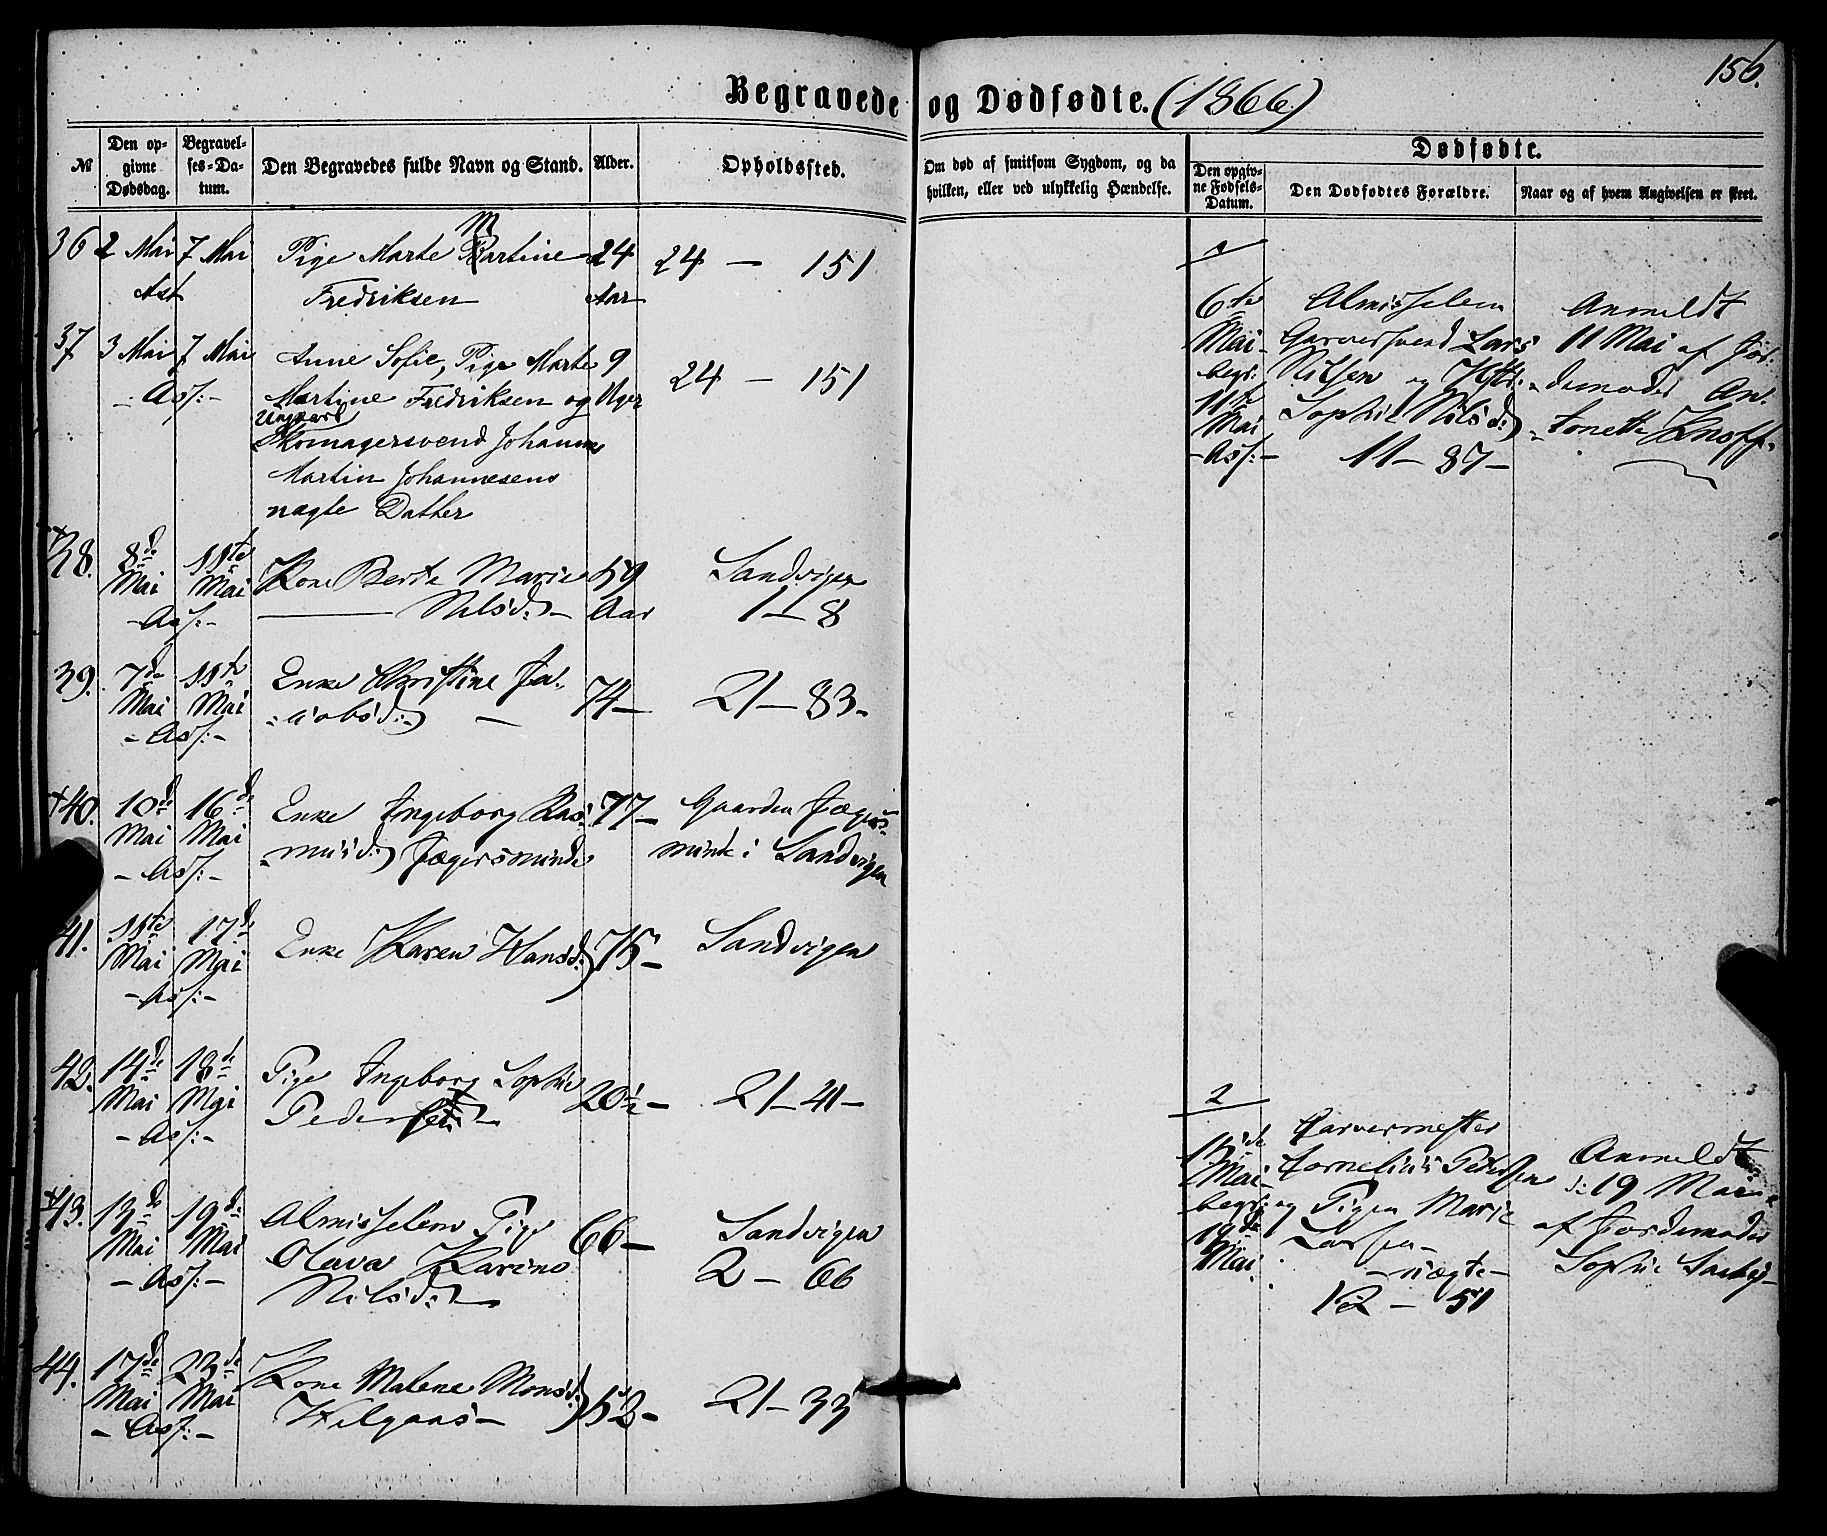 156.
Begravede og Dødfødte. (1866)
№
Den opgivne Dødsdag.
Begravelses-Datum.
Den Begravedes fulde Navn og Stand.
Alder.
Opholdssted.
Om død af smitsom Sygdom, og da hvilken, eller ved ulykkelig Hændelse.
Dødfødte.
Den opgivne Fødsels-Datum.
Den Dødfødtes Forældre.
Naar og af hvem Angivelsen er skeet.
36 2 Mai 7 Mai Pige Marte Martine 24 24 — 151
Ast Fredriksen Aar
37 3 Mai 7 Mai Anne Sofie, Pige Marte 9
- Ass:- Martine Fredriksen og Uger 24 — 151
Ungkarl
Skomagersvend Johannes
Martin Johannesens
uægte Datter
+38. 8de Mai 11te Mai Kone Berte Marie 59 Sandvigen
-Ass:- Nilsd:) - Aar 1 — 8
39. 7de Mai 11te Mai Enke Christine Ja-
- Ass:- -cobsd:) — 74 — 21 — 83 -
+40. 10de Mai 16de Mai Enke Ingeborg Ras- 77 — Gaarden Jægers-
- Ass:- -musd:) Jægersminde minde i Sandvigen
41. 11te Mai 17de Mai Enke Karen Hansd:) 75 — Sandvigen
- Ass:-
42. 14de Mai 18de Mai Pige Ingeborg Sophie
- Ass:- Peder 20½ — 21 — 41 —
+43. 13de Mai 19de Mai Almisselem Pige 66 — Sandvigen
- Ass:- Olava Karine 2 — 66
Nilsd:)
44. 17de Mai 23de Mai Kone Malene Monsd:) 52 - 21 — 33
- Ass:-
1
6te Mai
begr:
11te Mai
- Ass:-
Almisselem
Garversvend Lars
Nilsen og Hstr:
Sophie Nilsd:)
11 — 87 —
Anmeldt
11 Mai af Jor-
demoder An-
tonette Knoff
2
15de Mai
begr:
19de Mai
Garvermester
Cornelius Petersen
og Pigen Marie
Larsen -
- uægte -
12 — 51
Anmeldt
d: 19 Mai
af Jordemoder
Sophie